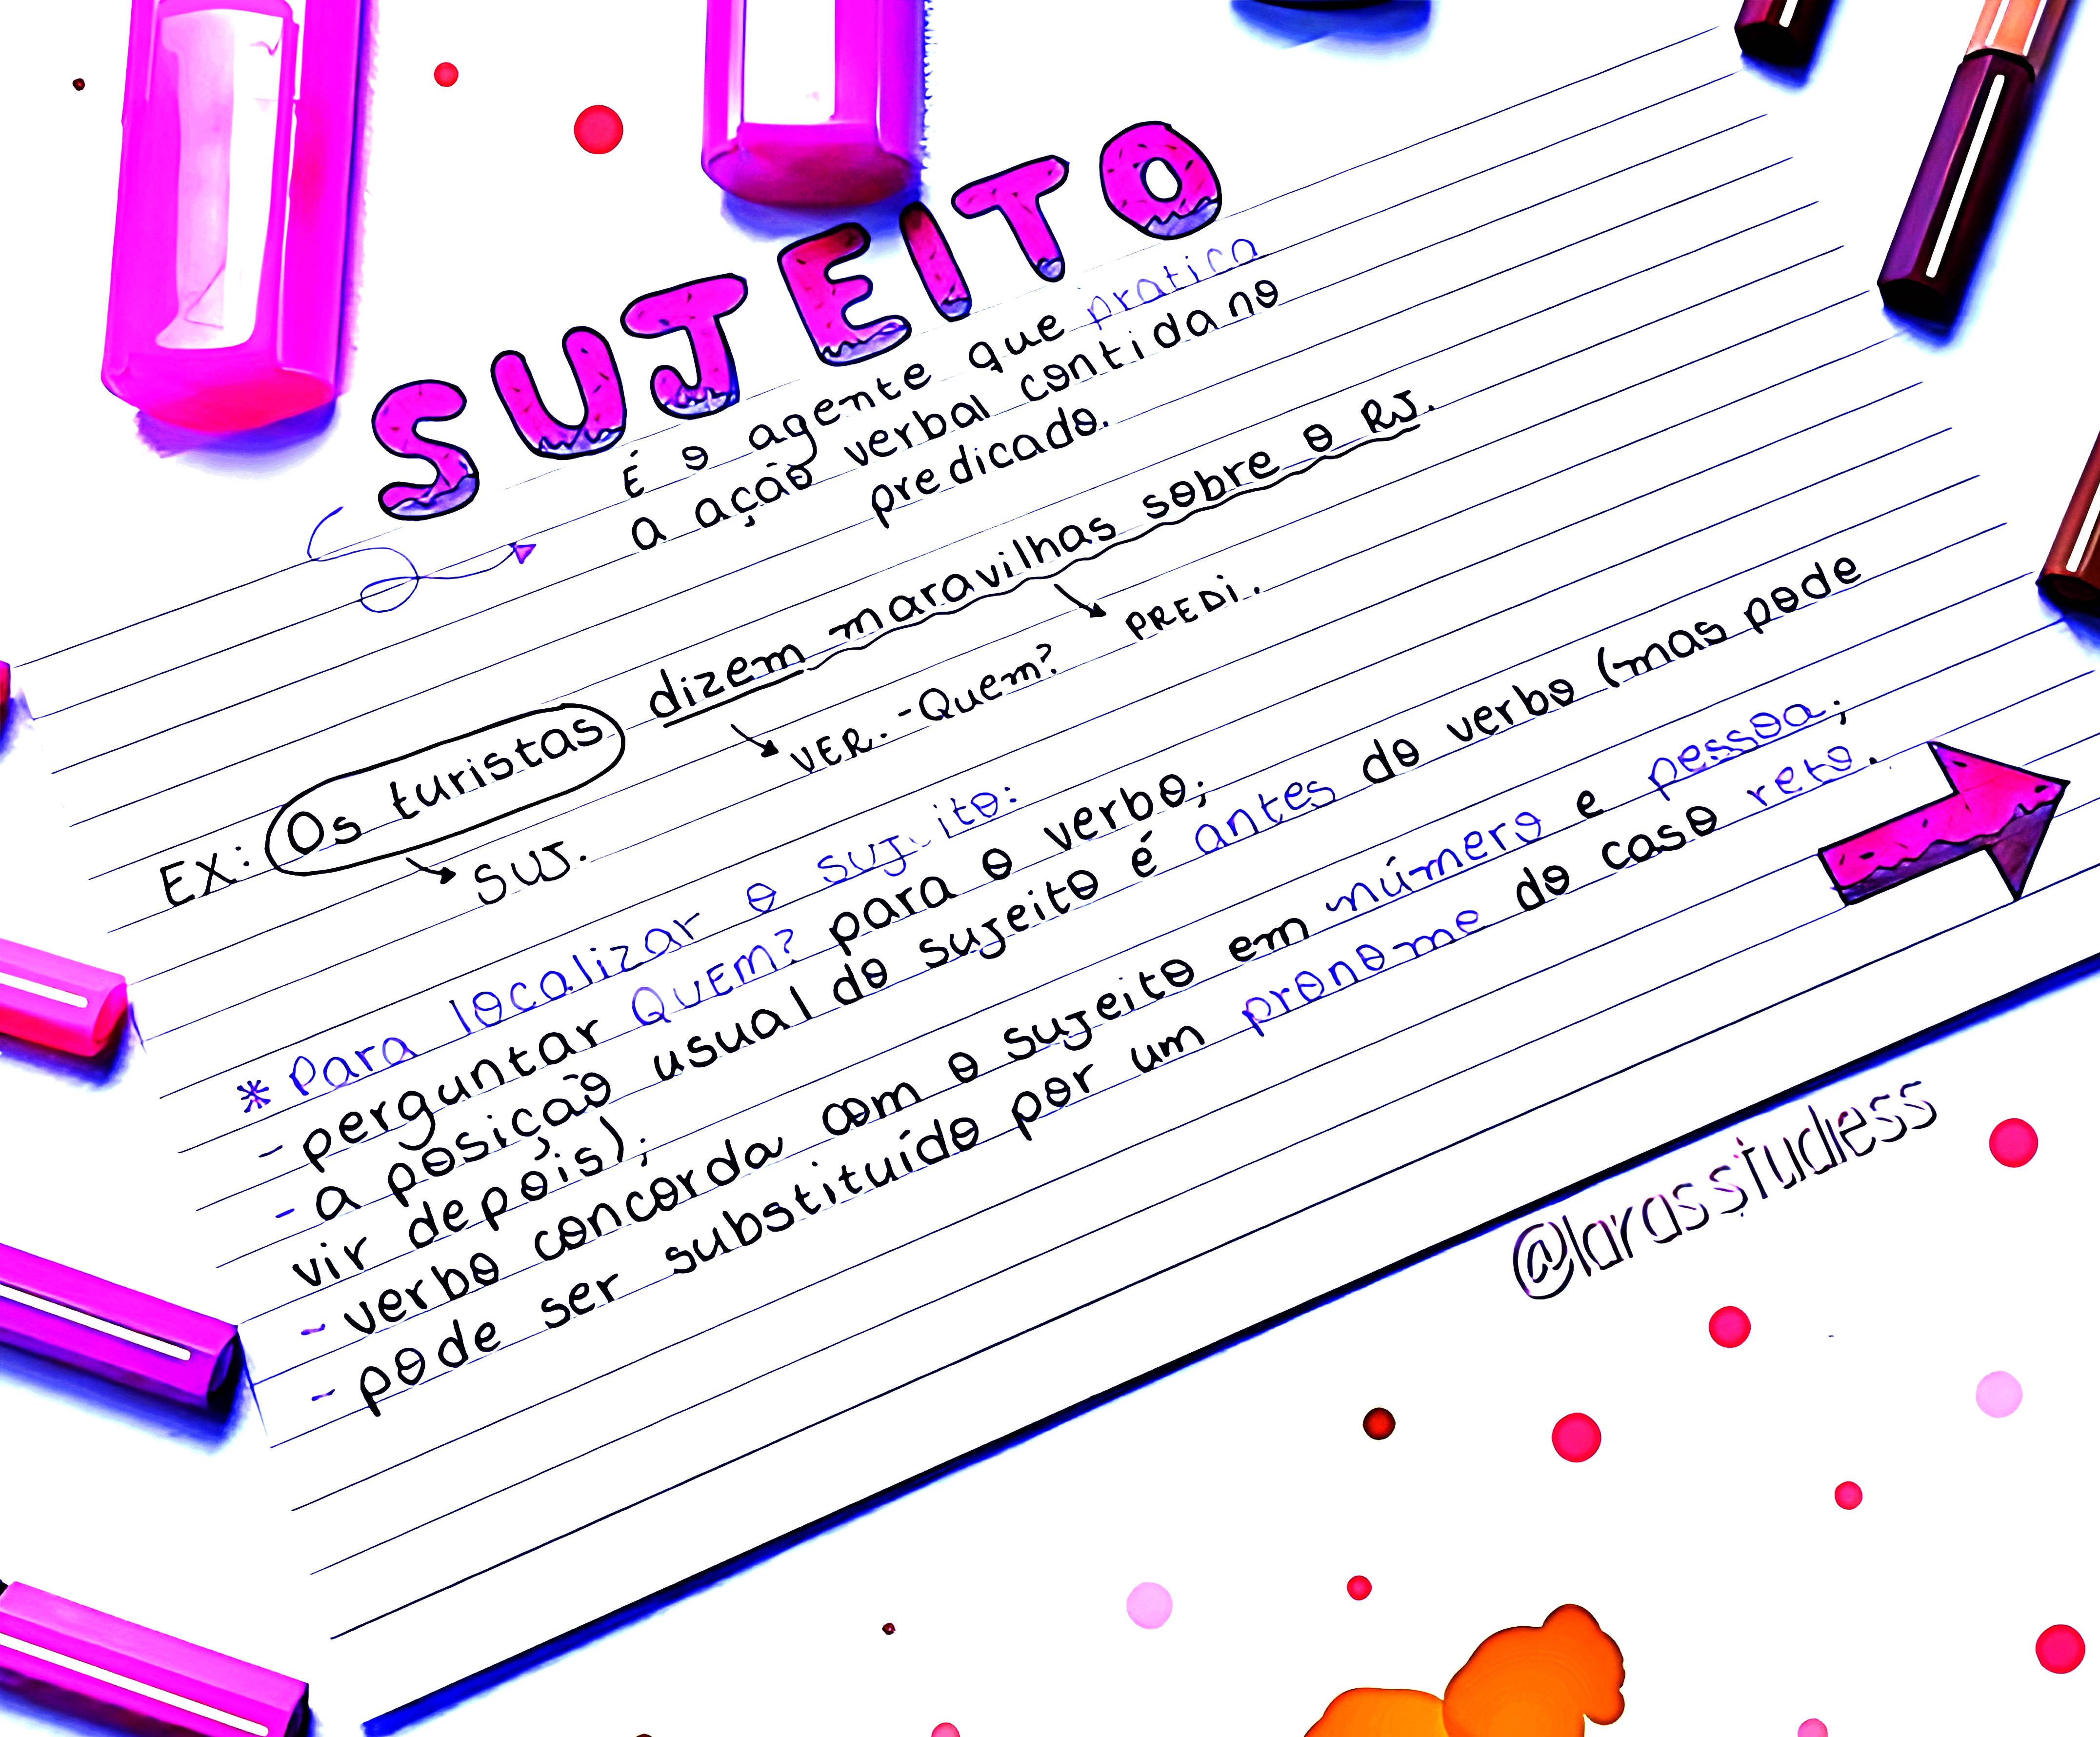 SUJEITO
É o agente que pratica
a ação verbal contida no
predicado.
EX: Os turistas dizem maravilhas sobre o RJ.
SUJ. VER. - Quem? PREDI.
* Para localizar o sujeito:
- perguntar QUEM? para o verbo;
- a posição usual do sujeito é antes do verbo (mas pode
vir depois);
- verbo concorda com o sujeito em número e pessoa;
- pode ser substituído por um pronome do caso reto.
@larasstudiess